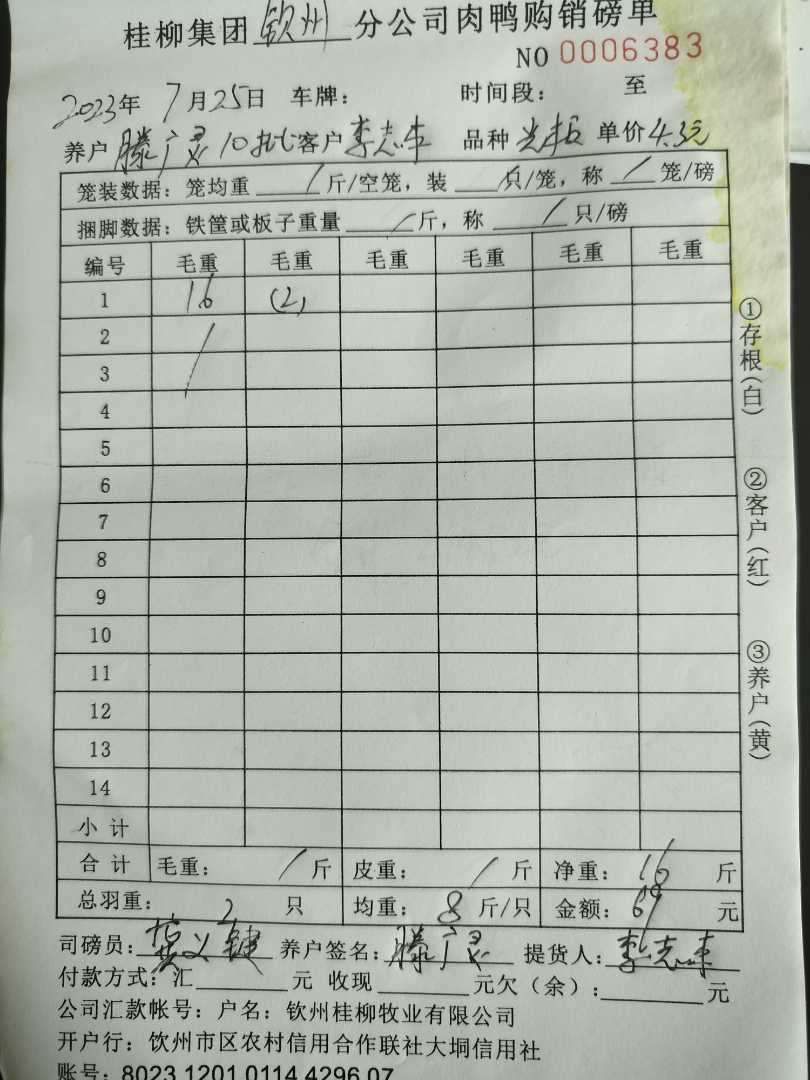 桂柳集团 钦州 分公司肉鸭购销磅单
NO 0006383
2023年 7月25日 车牌： 时间段： 至
养户 滕广灵 10批 客户 李志 品种 光板 单价 4.3元
笼装数据：笼均重 / 斤/空笼，装 / 只/笼，称 / 笼/磅
捆脚数据：铁筐或板子重量 / 斤，称 / 只/磅
编号 毛重 毛重 毛重 毛重 毛重 毛重
1 16 (2)
2 /
3
4
5
6
7
8
9
10
11
12
13
14
小 计
合 计 毛重： / 斤 皮重： / 斤 净重： 16 斤
总羽重： 2 只 均重： 8 斤/只 金额： 69 元
司磅员： 养户签名：滕广灵 提货人：李志
付款方式：汇 元 收现 元欠（余）： 元
公司汇款帐号：户名：钦州桂柳牧业有限公司
开户行：钦州市区农村信用合作联社大垌信用社
账号：8023 1201 0114 4296 07
①存根（白）
②客户（红）
③养户（黄）